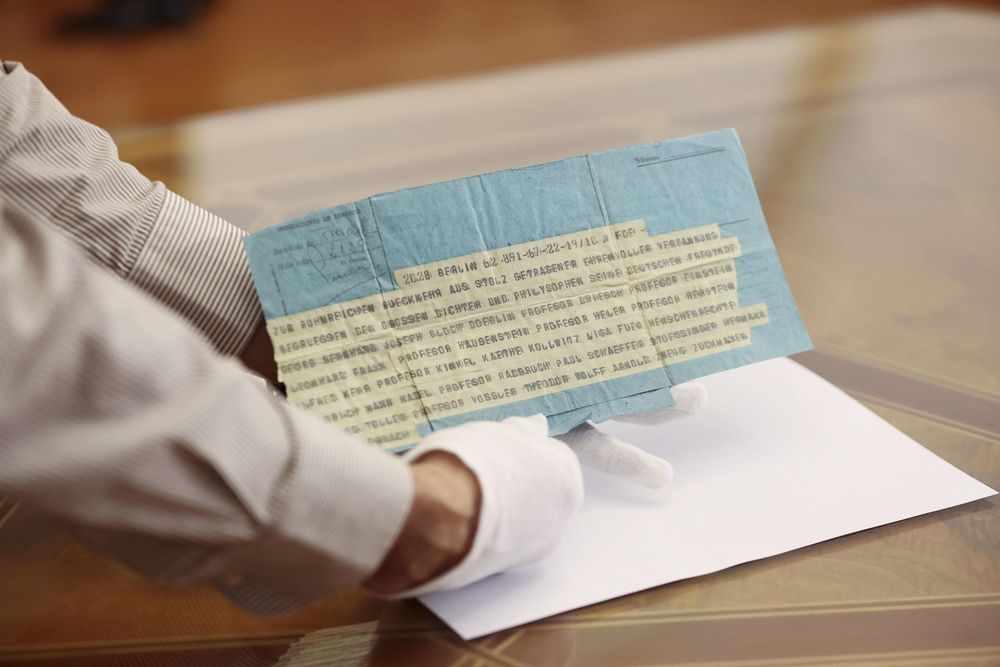 INDICACIONES DE SERVICIO
Número
2028 BERLIN 62 891-67-22-19/10 FUER
ZUR RUHMREICHEN RUECKKEHR AUS STOLZ GETRAGENER EHRENVOLLER VERBANNUNG
BEGRUESSEN DEN GROSSEN DICHTER UND PHILYSOPHEN SEINE DEUTSCHEN FREUNDE
GEORG BERNHARD JOSEPH BLOCH DOEBLIN PROFESOR DRIESCH PROFESOR EINSTEIN
LEONHARD FRANK PROFESOR HAUSENSTEIN PROFESOR HELER PROFESOR
ALFRED KERR PROFESOR KINKEL KAETHE KOLLWITZ LIGA FUER MENSCHENRECHTE
MANN NADEL PROFESOR RADBRUCH PAUL SCHAEFFER STOESSINGER HERMANN
TOLLER PROFESOR VOSSLER THEODOR WOLFF ARNOLD ZWEIG ZUCKMAYER